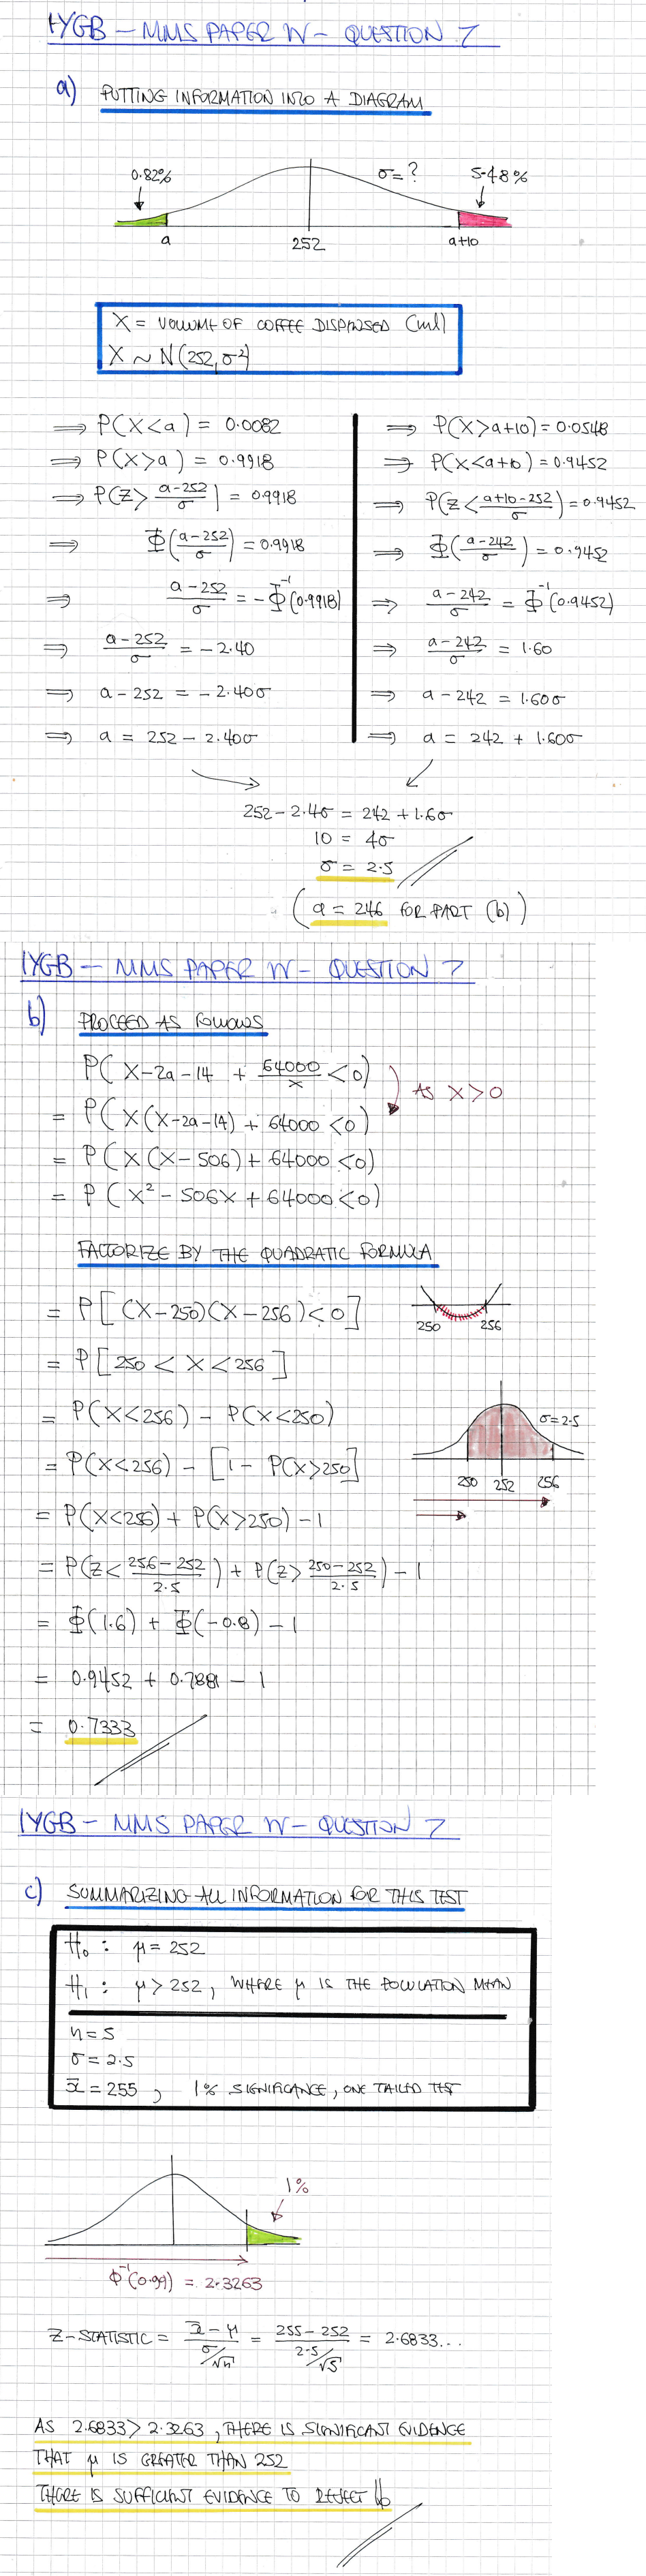 IYGB – MMS PAPER W – QUESTION 7
a) PUTTING INFORMATION INTO A DIAGRAM
0.82%
σ = ?
5.48%
a
252
a+10
X = VOLUME OF COFFEE DISPENSED (ml)
X ~ N(252, σ²)
⇒ P(X<a) = 0.0082
⇒ P(X>a) = 0.9918
⇒ P(Z > (a-252)/σ) = 0.9918
⇒ Φ((a-252)/σ) = 0.9918
⇒ (a-252)/σ = -Φ⁻¹(0.9918)
⇒ (a-252)/σ = -2.40
⇒ a - 252 = -2.40σ
⇒ a = 252 - 2.40σ
⇒ P(X>a+10) = 0.0548
⇒ P(X<a+10) = 0.9452
⇒ P(Z < (a+10-252)/σ) = 0.9452
⇒ Φ((a-242)/σ) = 0.9452
⇒ (a-242)/σ = Φ⁻¹(0.9452)
⇒ (a-242)/σ = 1.60
⇒ a - 242 = 1.60σ
⇒ a = 242 + 1.60σ
252 - 2.4σ = 242 + 1.6σ
10 = 4σ
σ = 2.5
(a = 246 FOR PART (b))
IYGB – MMS PAPER W – QUESTION 7
b) PROCEED AS FOLLOWS
P(X - 2a - 14 + 64000/X < 0)
AS X > 0
= P(X(X-2a-14) + 64000 < 0)
= P(X(X-506) + 64000 < 0)
= P(X² - 506X + 64000 < 0)
FACTORIZE BY THE QUADRATIC FORMULA
= P[(X-250)(X-256) < 0]
250 256
= P[250 < X < 256]
= P(X<256) - P(X<250)
σ = 2.5
= P(X<256) - [1 - P(X>250]
250 252 256
= P(X<256) + P(X>250) - 1
= P(Z < (256-252)/2.5) + P(Z > (250-252)/2.5) - 1
= Φ(1.6) + Φ(-0.8) - 1
= 0.9452 + 0.7881 - 1
= 0.7333
IYGB – MMS PAPER W – QUESTION 7
c) SUMMARIZING ALL INFORMATION FOR THIS TEST
H₀ : μ = 252
H₁ : μ > 252, WHERE μ IS THE POPULATION MEAN
n = 5
σ = 2.5
x̄ = 255, 1% SIGNIFICANCE, ONE TAILED TEST
1%
Φ⁻¹(0.99) = 2.3263
Z-STATISTIC = (x̄ - μ)/(σ/√n) = (255 - 252)/(2.5/√5) = 2.6833...
AS 2.6833 > 2.3263, THERE IS SIGNIFICANT EVIDENCE
THAT μ IS GREATER THAN 252
THERE IS SUFFICIENT EVIDENCE TO REJECT H₀